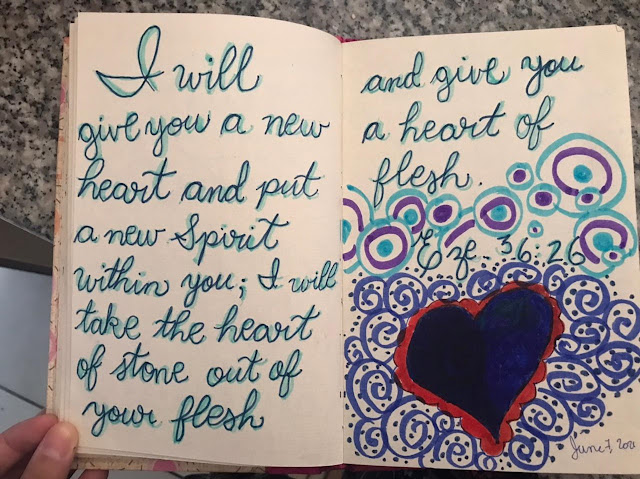 I will
give you a new
heart and put
a new Spirit
within you; I will
take the heart
of stone out of
your flesh
and give you
a heart of
flesh.
Eze. 36:26
June 7,